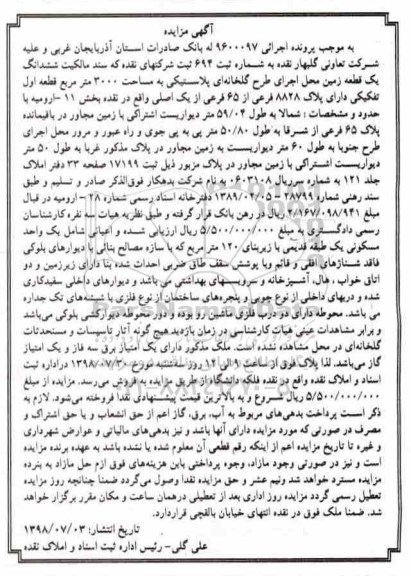 آگهی مزایده
به موجب پرونده اجرائی ۹۶۰۰۰۹۷ له بانک صادرات استان آذربایجان غربی و علیه
شرکت تعاونی گلبهار نقده به شماره ثبت ۶۹۴ ثبت شرکتهای نقده که سند مالکیت ششدانگ
یک قطعه زمین محل اجرای طرح گلخانه‌ای پلاستیکی به مساحت ۳۰۰۰ متر مربع قطعه اول
تفکیکی دارای پلاک ۸۸۲۸ فرعی از ۶۵ فرعی از یک اصلی واقع در نقده بخش ۱۱ -ارومیه با
حدود و مشخصات : شمالا به طول ۵۹/۰۴ متر دیواریست اشتراکی با زمین مجاور در باقیمانده
پلاک ۶۵ فرعی از شرقا به طول ۵۰/۸۰ متر پی به پی جوی و راه عبور و مرور محل اجرای
طرح جنوبا به طول ۶۰ متر دیواریست به زمین مجاور در پلاک مذکور غربا به طول ۵۰ متر
دیواریست اشتراکی با زمین مجاور در پلاک مزبور ذیل ثبت ۱۷۱۹۹ صفحه ۳۳ دفتر املاک
جلد ۱۲۱ به شماره سریال ۰۶۰۳۱۰۸ به نام شرکت بدهکار فوق‌الذکر صادر و تسلیم و طبق
سند رهنی شماره ۲۸۷۹۹ - ۱۳۸۹/۰۲/۰۵ دفترخانه اسناد رسمی شماره ۲۸ -ارومیه در قبال
مبلغ ۲/۱۶۷/۰۹۸/۹۴۱ ریال در رهن بانک قرار گرفته و طبق نظریه هیات سه نفره کارشناسان
رسمی دادگستری به مبلغ ۵/۵۰۰/۰۰۰/۰۰۰ ریال ارزیابی شده و اعیانی شامل یک واحد
مسکونی یک طبقه قدیمی با زیربنای ۱۲۰ متر مربع که با سازه مصالح بنائی با دیوارهای بلوکی
فاقد شنازهای افقی و قائم وبا پوشش سقف طاق ضربی احداث شده بنا دارای زیرزمین و دو
اتاق خواب ، هال، آشپزخانه و سرویسهای بهداشتی می باشد و دیوارهای داخلی سفیدکاری
شده و دربهای داخلی از نوع چوبی و پنجره‌های ساختمان از نوع فلزی با شیشه‌های تک جداره
می باشد. محوطه دارای دو درب فلزی ماشین رو بوده و دور محوطه دیوارکشی بلوکی می‌باشد
و برابر مشاهدات عینی هیات کارشناسی در زمان بازدید هیچ گونه آثار تاسیسات و مستحدثات
گلخانه‌ای در محل مشاهده نشده است. ملک مذکور دارای یک امتیاز برق سه فاز و یک امتیاز
گاز می‌باشد. لذا پلاک فوق از ساعت ۹ الی ۱۲ روز سه‌شنبه مورخ ۱۳۹۸/۰۷/۳۰ در اداره ثبت
اسناد و املاک نقده واقع در نقده فلکه دانشگاه از طریق مزایده به فروش می‌رسد. مزایده از مبلغ
۵/۵۰۰/۰۰۰/۰۰۰ ریال شروع و به بالاترین قیمت پیشنهادی نقدا فروخته می‌شود. لازم به
ذکر است پرداخت بدهی‌های مربوط به آب، برق، گاز اعم از حق انشعاب و یا حق اشتراک و
مصرف در صورتی که مورد مزایده دارای آنها باشد و نیز بدهی‌های مالیاتی و عوارض شهرداری
و غیره تا تاریخ مزایده اعم از اینکه رقم قطعی آن معلوم شده یا نشده باشد به عهده برنده مزایده
است و نیز در صورتی وجود مازاد، وجوه پرداختی باین هزینه‌های فوق ازم حل مازاد به برنده
مزایده مسترد خواهد شد ونیم عشر و حق مزایده نقدا وصول می‌گردد ضمنا چنانچه روز مزایده
تعطیل رسمی گردد مزایده روز اداری بعد از تعطیلی درهمان ساعت و مکان مقرر برگزار خواهد
شد. ضمنا ملک فوق در نقده انتهای خیابان بالقچی قراردارد.
تاریخ انتشار: ۱۳۹۸/۰۷/۰۳
علی گلی- رئیس اداره ثبت اسناد و املاک نقده